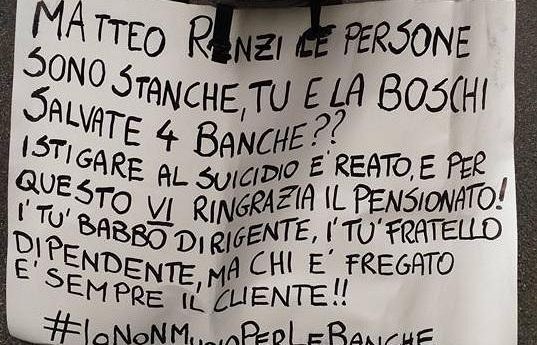 MATTEO RENZI LE PERSONE
SONO STANCHE, TU E LA BOSCHI
SALVATE 4 BANCHE??
ISTIGARE AL SUICIDIO E' REATO, E PER
QUESTO VI RINGRAZIA IL PENSIONATO!
I' TU' BABBO DIRIGENTE, I' TU' FRATELLO
DIPENDENTE, MA CHI E' FREGATO
E' SEMPRE IL CLIENTE!!
#IONONMUOIOPERLEBANCHE